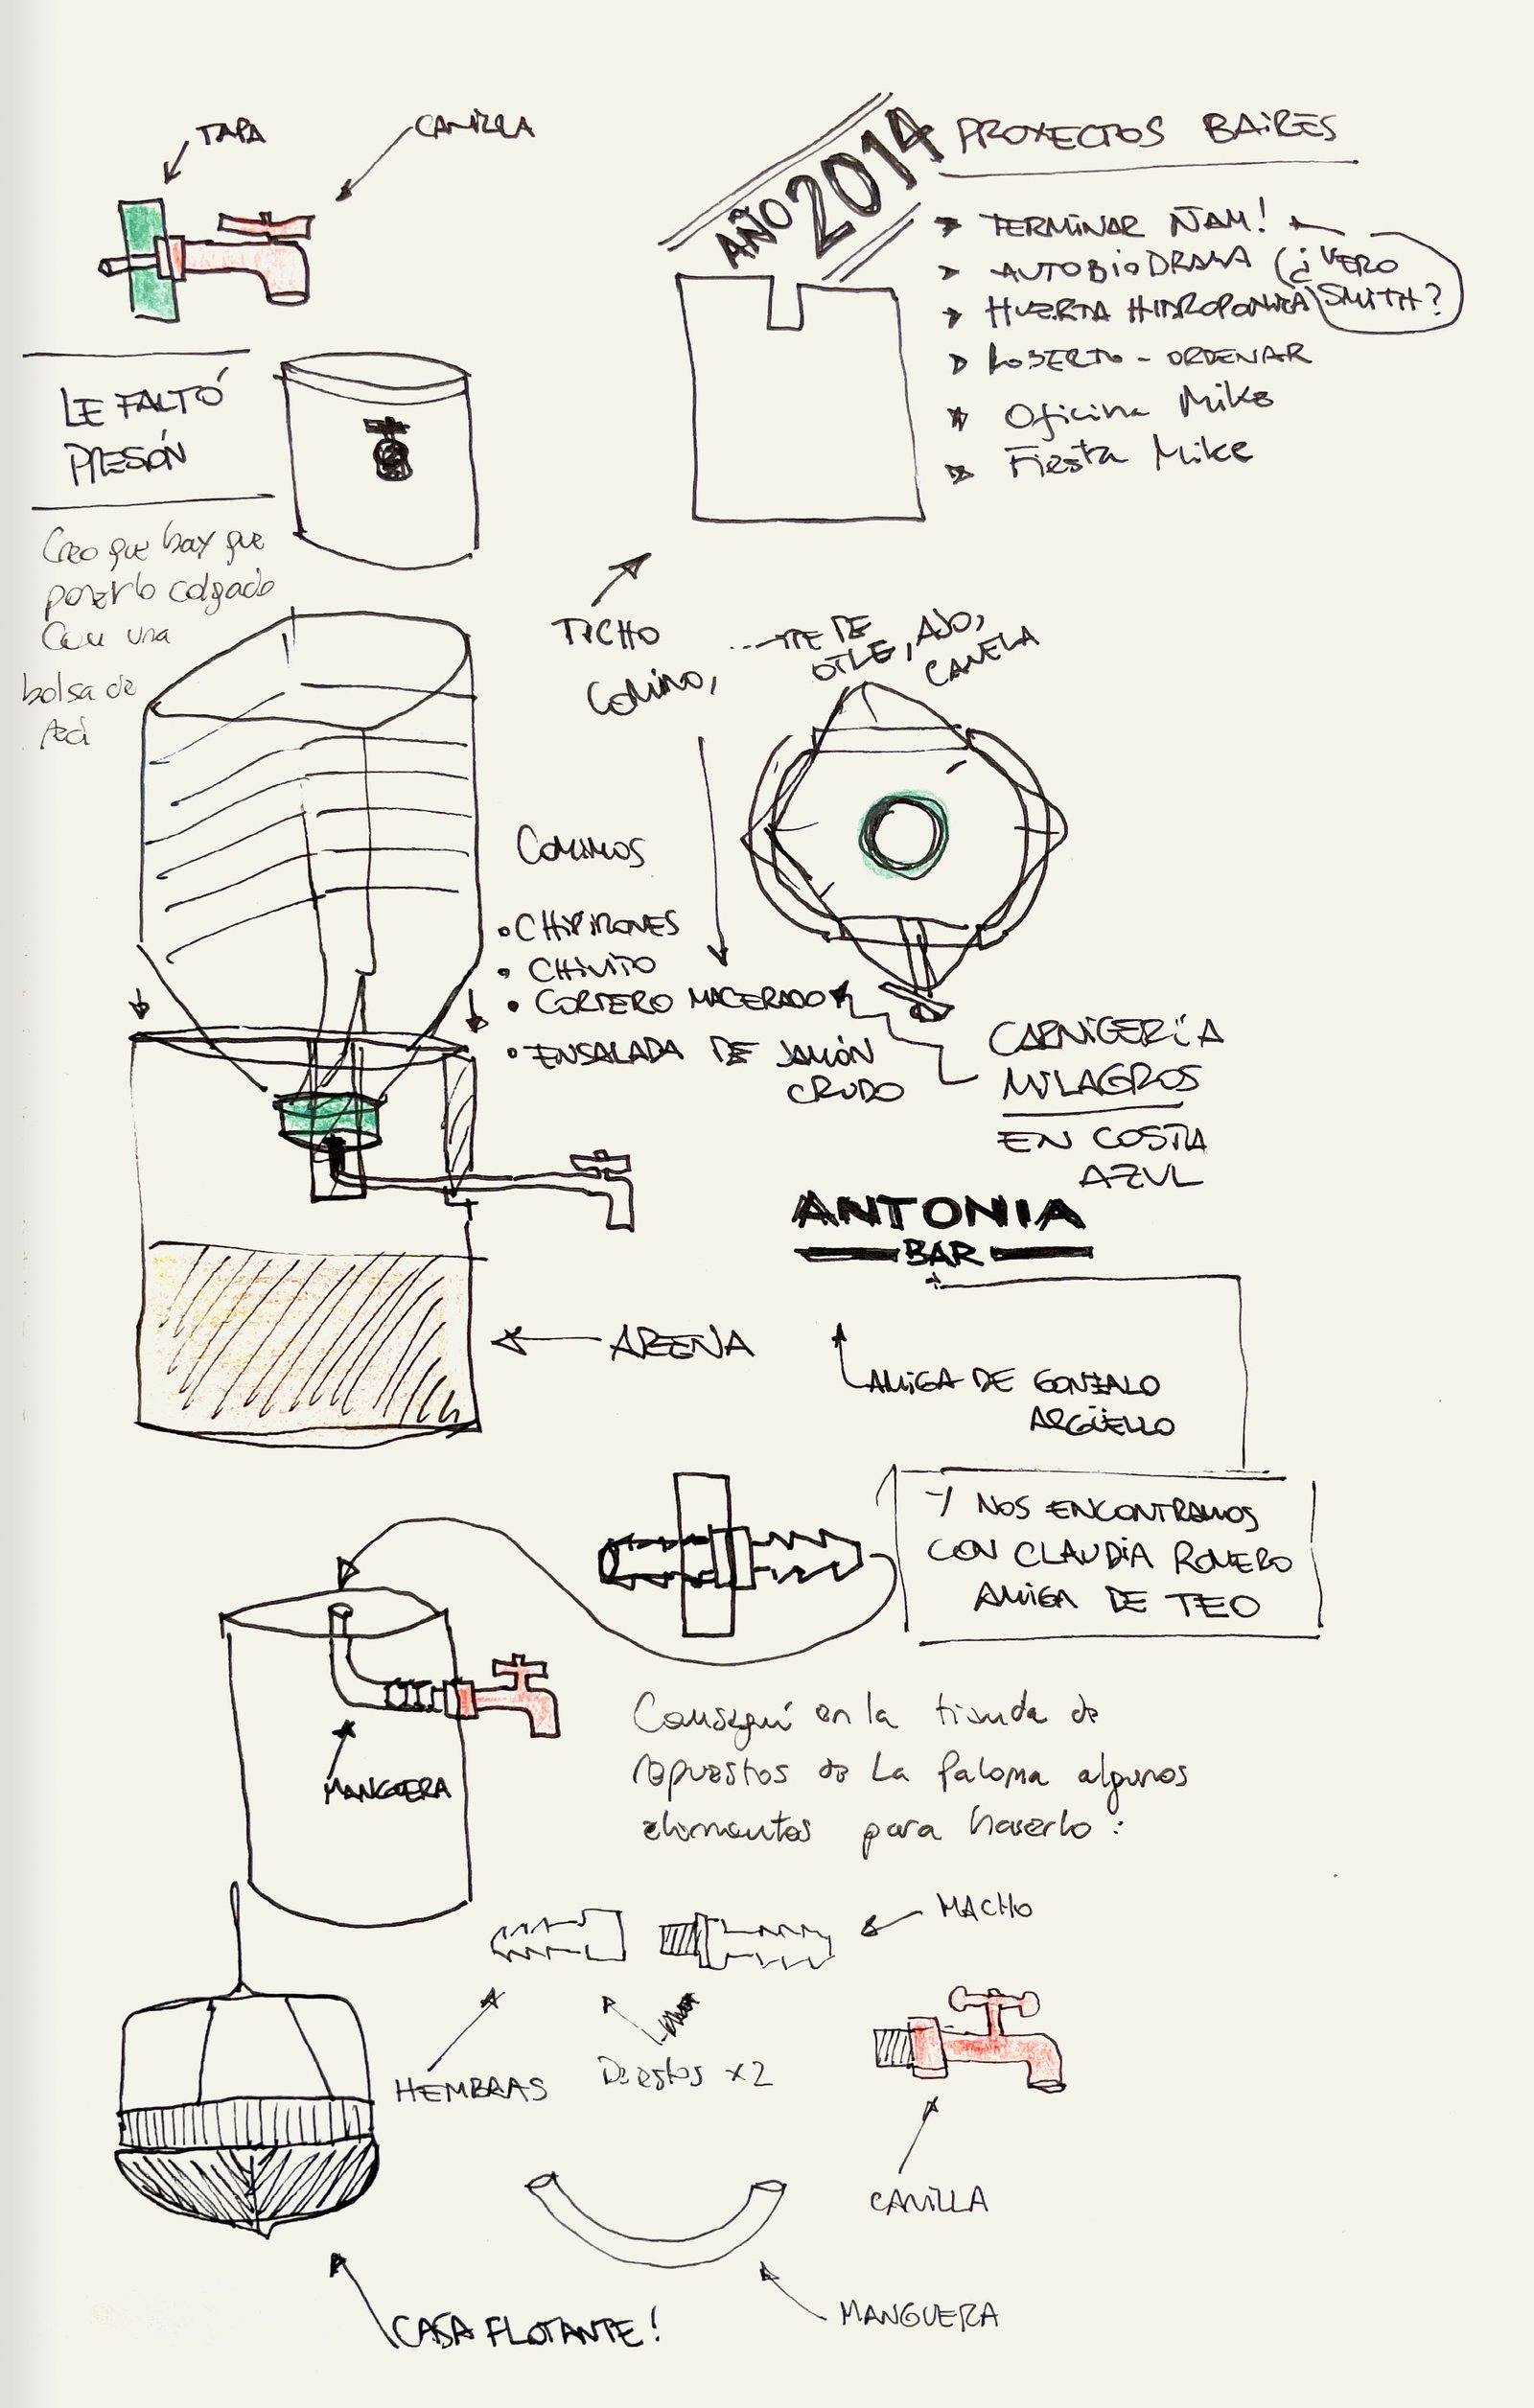 TAPA
CANILLA
LE FALTÓ
PRESIÓN
Creo que hay que
ponerlo colgado
Con una
bolsa de
AÑO 2014
PROYECTOS BAIRES
TERMINAR ÑAM!
AUTOBIODRAMA (¿VERO
HUERTA HIDROPONICA SMITH?
ROBERTO - ORDENAR
Oficina Mike
Fiesta Mike
TICHO
COMINO,
AJO,
CANELA
COMIMOS
• CHIPIRONES
• CHIVITO
• CORDERO MACERADO
• ENSALADA DE JAMÓN
CRUDO
CARNICERÍA
MILAGROS
EN COSTA
AZUL
ANTONIA
BAR
ARENA
AMIGA DE GONZALO
ARGÜELLO
Y NOS ENCONTRAMOS
CON CLAUDIA ROMERO
AMIGA DE TEO
MANGUERA
Conseguí en la tienda de
repuestos de La Paloma algunos
elementos para hacerlo:
MACHO
HEMBRAS
De estos x2
CANILLA
MANGUERA
CASA FLOTANTE!